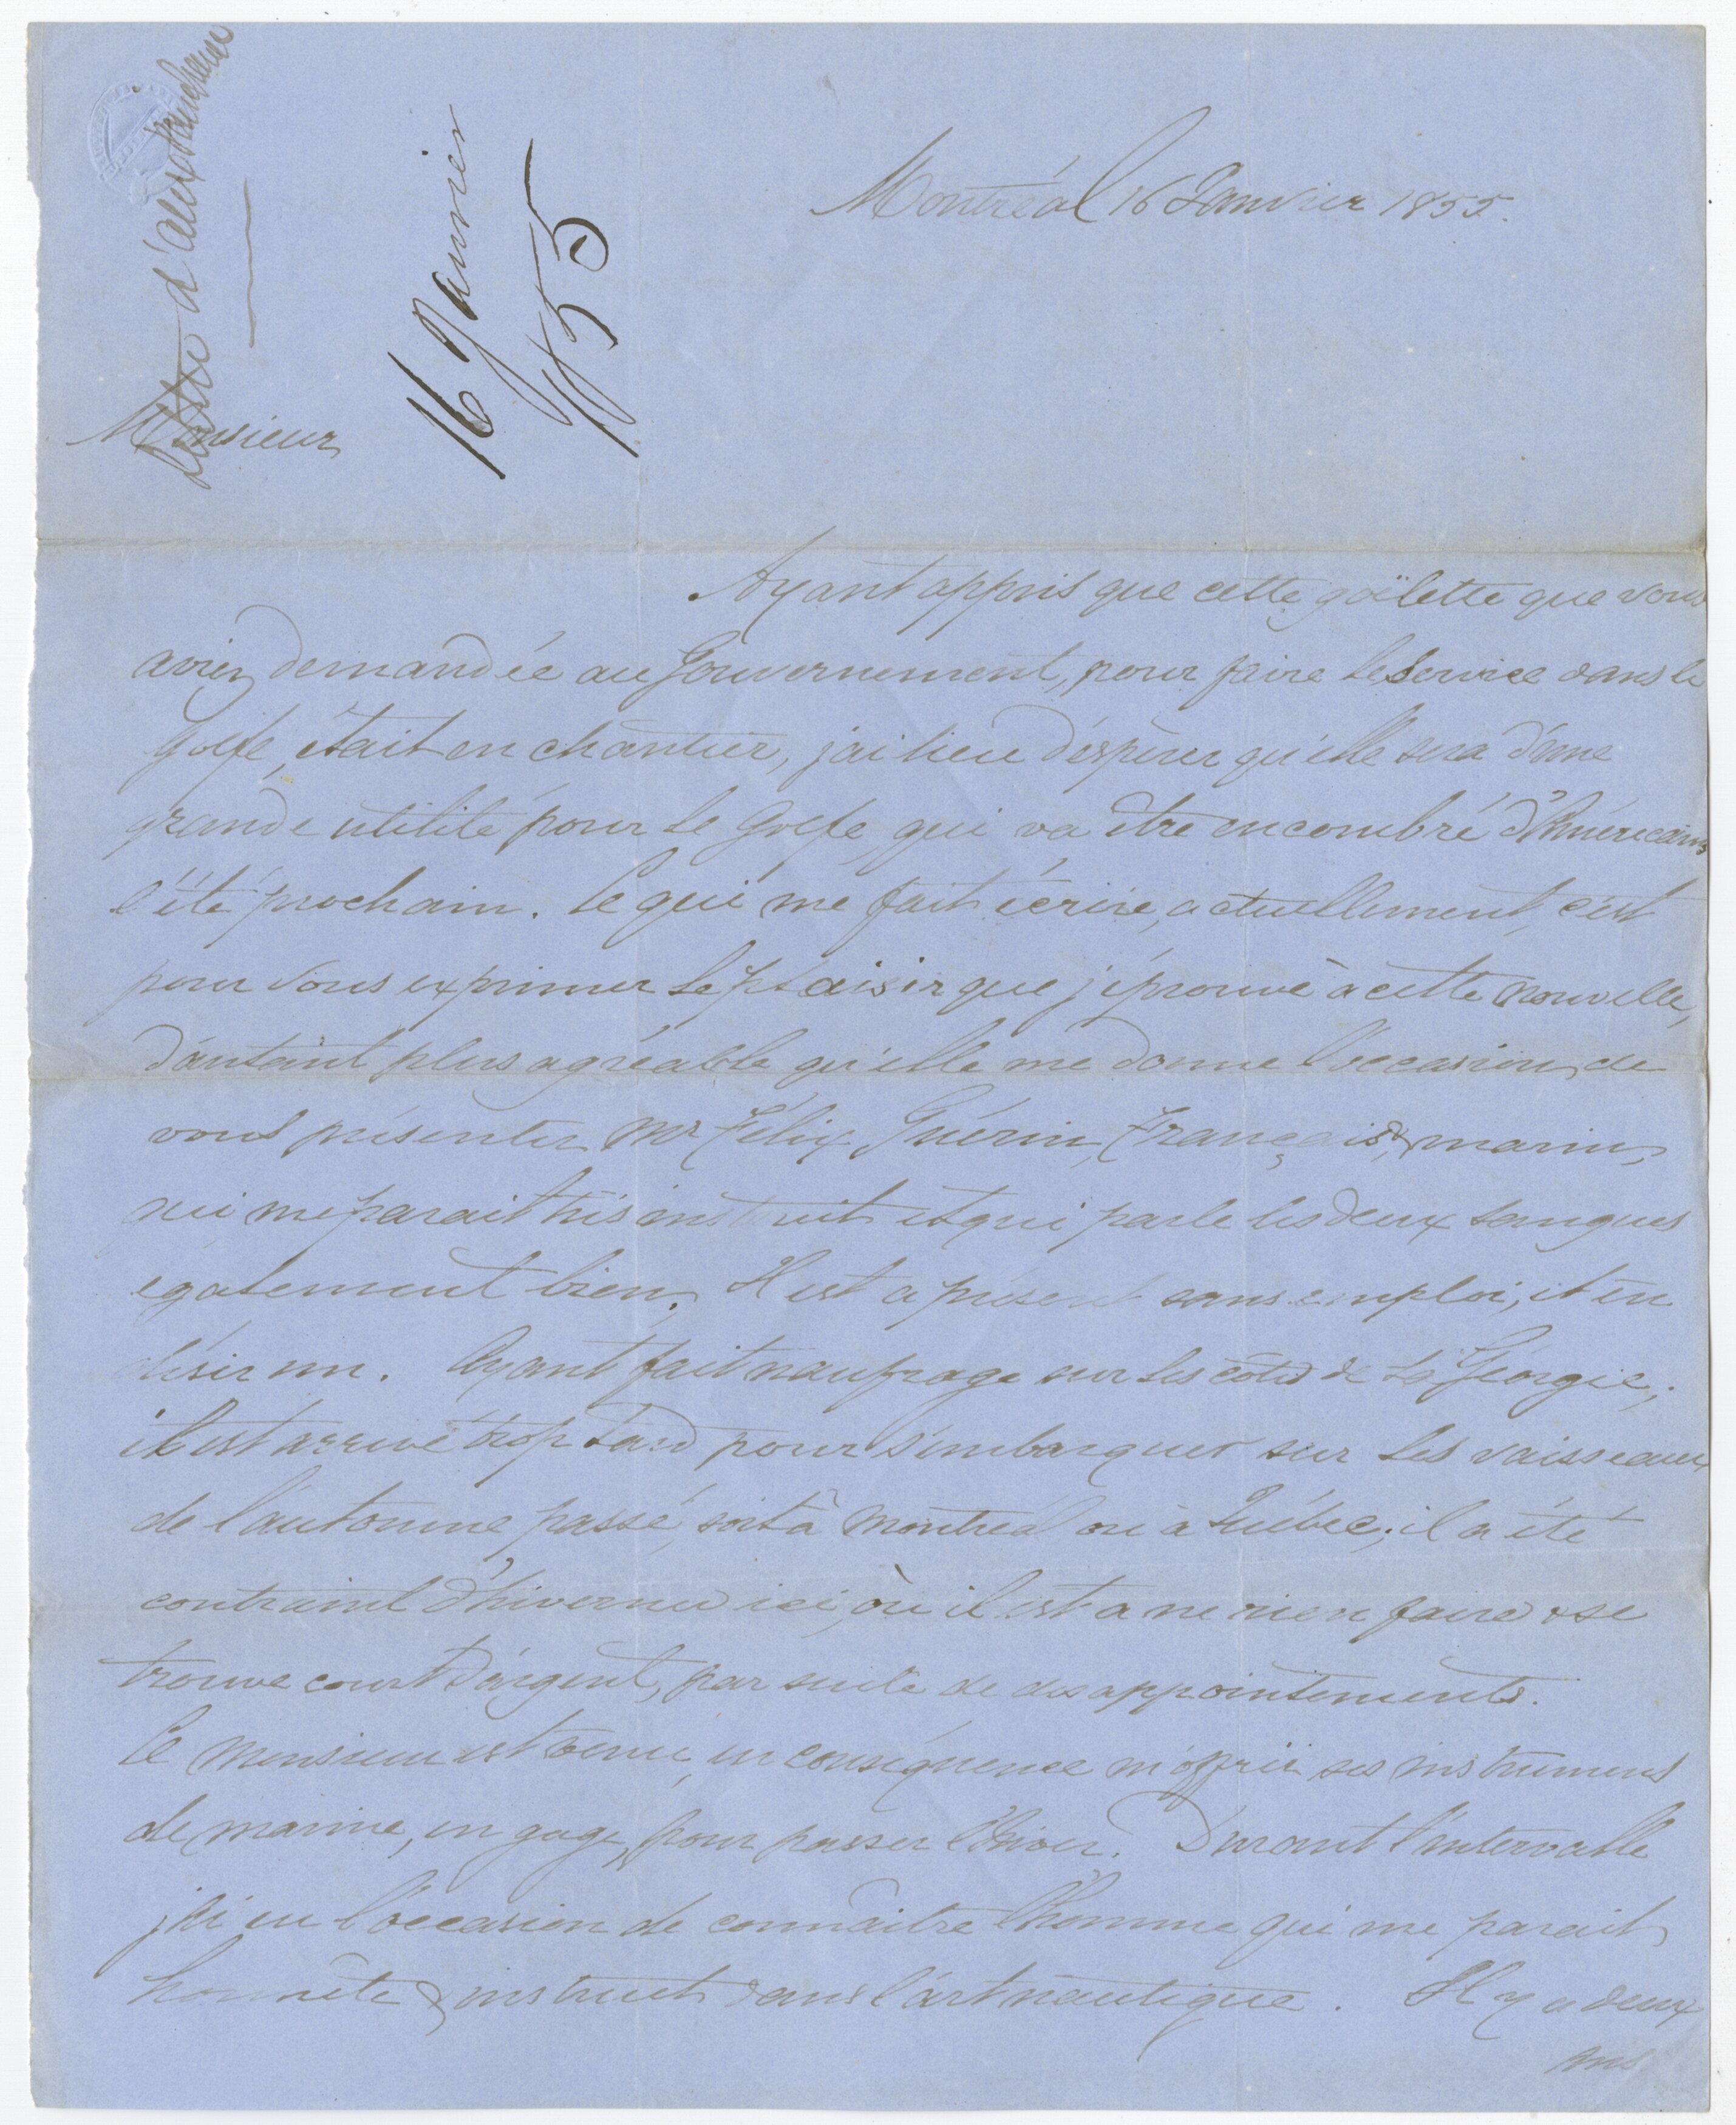 Lettre d'Alex
16 Janvier
1855
Montréal 16 Janvier 1855.
Monsieur
Ayant appris que cette goëlette que vous
aviez demandée au Gouvernement, pour faire le Service dans le
Golfe, était en chantier, j'ai lieu d'espérer qu'elle sera d'une
grande utilité pour le Golfe, qui va être encombré d'Américains
l'été prochain. Ce qui me fait écrire, actuellement, c'est
pour vous exprimer le plaisir que j'éprouve à cette nouvelle,
d'autant plus agréable qu'elle me donne l'occasion de
vous présenter Mr Félix Guérin, Français, & marin,
qui me parait très instruit et qui parle les deux langues
également bien. Il est a présent sans emploi, et en
désir un. Ayant fait naufrage sur les côtes de la Géorgie,
il est arrivé trop tard pour s'embarquer sur les vaisseaux
de l'automne passé, soit à Montréal ou à Québec; il a été
contraint d'hiverner ici, où il est a ne rien faire & se
trouve court d'argent, par suite de desappointements.
Ce monsieur est venu, en conséquence m'offrir ses instrumens
de marine, en gage, pour passer l'hiver. Durant l'intervalle
j'ai eu l'occasion de connaître l'homme qui me parait
honnête & instruit dans l'art nautique. Il y a deux
ans